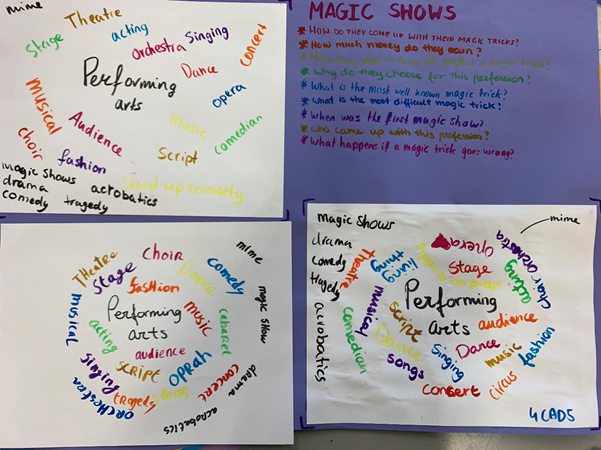 mime
Theatre
acting
Singing
Stage
orchestra
concert
Performing
arts
Dance
opera
musical
Audience
Music
comedian
choir
fashion
Script
magic shows
acrobatics
Stand up comedy
drama
comedy
tragedy
MAGIC SHOWS
* HOW DO THEY COME UP WITH THEIR MAGIC TRICKS?
* How much money do they earn?
* How long does it take to prepare a magic trick?
* Why do they choose for this profession?
* What is the most well known magic trick?
* What is the most difficult magic trick?
* When was the first magic show?
* who came up with this profession?
* What happens if a magic trick goes wrong?
THeatre
Choir
mime
Stage
Dance
comedy
fashion
magic show
Performing
arts
music
musical
cabaret
acting
audience
singing
script
OPRAH
concert
drama
orchestra
tragedy
acrobatics
magic shows
mime
drama
comedy
tragedy
acrobatics
theatre
living
thing
opera
choir
orchestra
acting
Stage
Performing
arts
musical
script
audience
comedian
Dance
Dance
fashion
songs
Singing
music
concert
circus
4CAD5